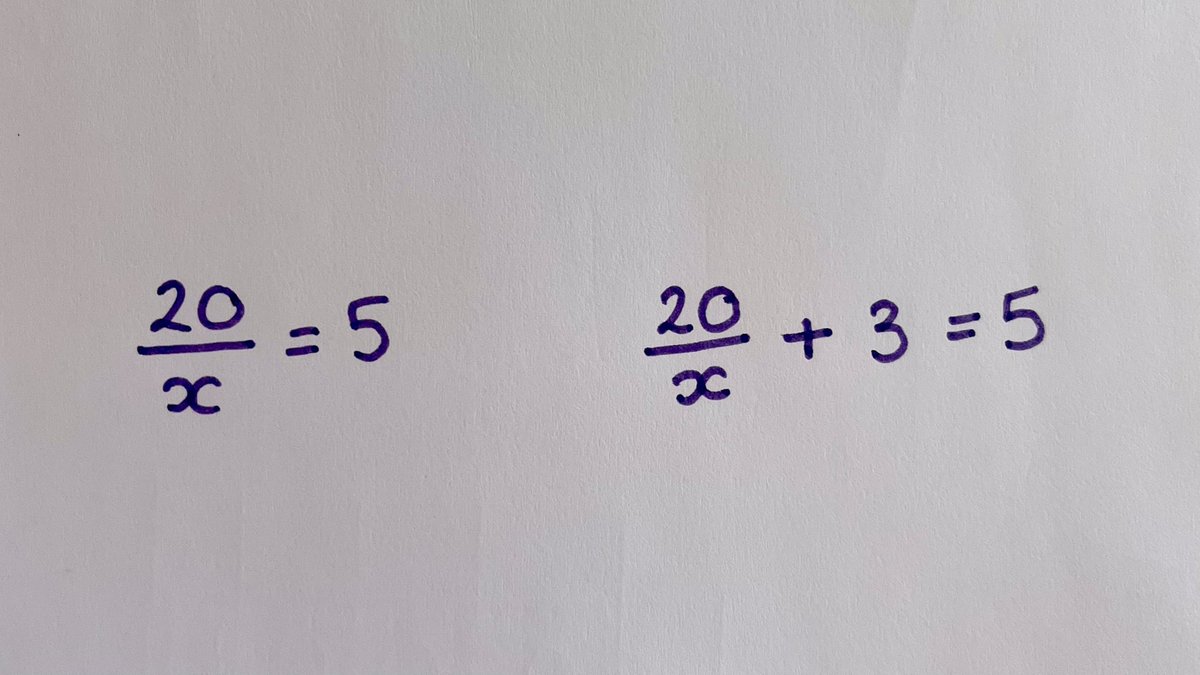 20/x = 5
20/x + 3 = 5